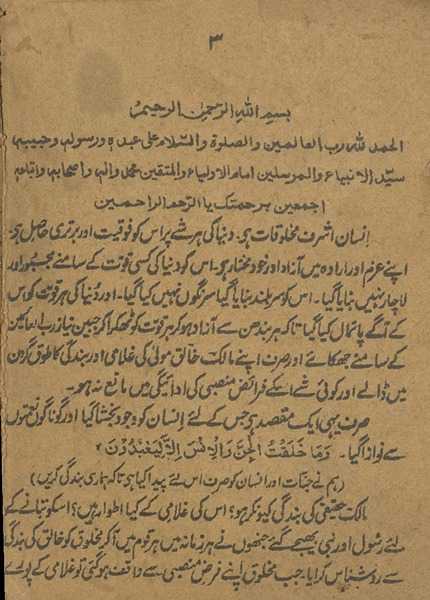 ۳
بسم اللہ الرحمن الرحیم
الحمد للہ رب العالمین والصلوة والسلام علی عبدہ ورسولہ وحبیبہ
سید الانبیاء والمرسلین امام الاولیاء والمتقین محمد والہ واصحابہ واتباعہ
اجمعین برحمتک یا ارحم الراحمین
انسان اشرف مخلوقات ہے۔ دنیا کی ہر شے پر اس کو فوقیت اور برتری حاصل ہے۔
اپنے عزم اور ارادہ میں آزاد اور خود مختار ہے۔ اس کو دنیا کی کسی قوت کے سامنے مجبور اور
لاچار نہیں بنایا گیا۔ اس کو سربلند بنایا گیا سرنگوں نہیں کیا گیا۔ اور دنیا کی ہر قوت کو اس
کے آگے پائمال کیا گیا تاکہ ہر بندھن سے آزاد ہو کر ہر قوت کو ٹھکرا کر جبین نیاز رب العالمین
کے سامنے جھکائے اور صرف اپنے مالک خالق مولیٰ کی غلامی اور بندگی کا طوق گردن
میں ڈالے اور کوئی شے اسکے فرائض منصبی کی ادائیگی میں مانع نہ ہو۔
صرف یہی ایک مقصد ہے جس کے لئے انسان کو وجود بخشا گیا اور گوناگوں نعمتوں
سے نوازا گیا۔ وَمَا خَلَقْتُ الْجِنَّ وَالْاِنْسَ اِلَّا لِيَعْبُدُوْنَ
(ہم نے جنات اور انسان کو صرف اس لئے پیدا کیا ہے تاکہ ہماری بندگی کریں)
مالک حقیقی کی بندگی کیونکر ہو؟ اس کی غلامی کے کیا اطوار ہیں؟ اسکو بتانے کے
لئے رسول اور نبی بھیجے گئے جنھوں نے ہر زمانہ میں ہر قوم میں آکر مخلوق کو خالق کی بندگی
سے روشناس کرایا۔ جب مخلوق اپنے فرض منصبی سے واقف ہو گئی تو غلامی کے پورے